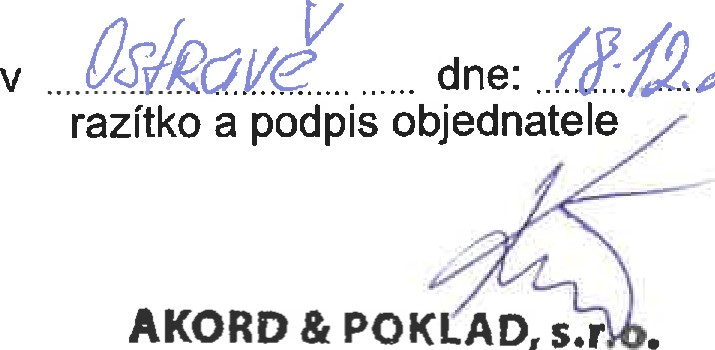 v Ostravě dne: 18.12.
razítko a podpis objednatele
AKORD & POKLAD, s.r.o.